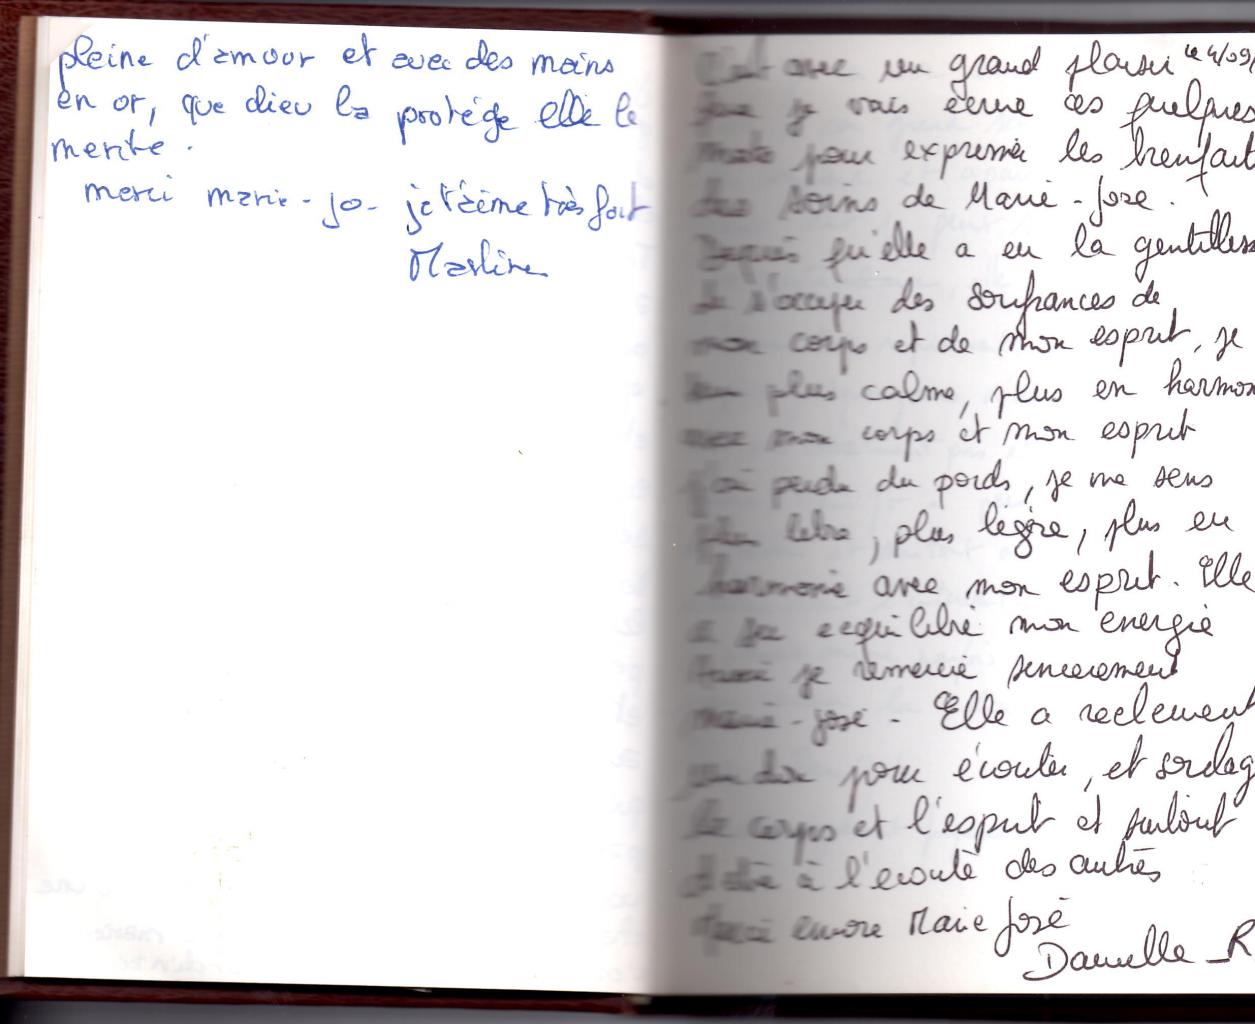 pleine d'amour et avec des mains
en or, que dieu la protége elle le
merite.
merci marie-jo- je t'aime très fort
Marline
le 4/09/
C'est avec un grand plaisir
que je vais ecrire ces quelques
mots pour expressia les bienfait
des soins de Marie-Jose.
Depuis qu'elle a eu la gentilless
de s'occuper des soufrances de
mon corps et de mon esprit, je
suis plus calme, plus en harmon
avec mon corps et mon esprit
j'ai perdu du poids, je me sens
plus libre, plus légère, plus en
harmonie avec mon esprit. Elle
a equilibré mon energie
Aussi je remercie sencerement
marie-josé. Elle a reelement
un don pour écouter, et soulag
le corps et l'esprit et surtout
d'etre à l'ecoute des autres
Merci encore Marie José
Danielle R